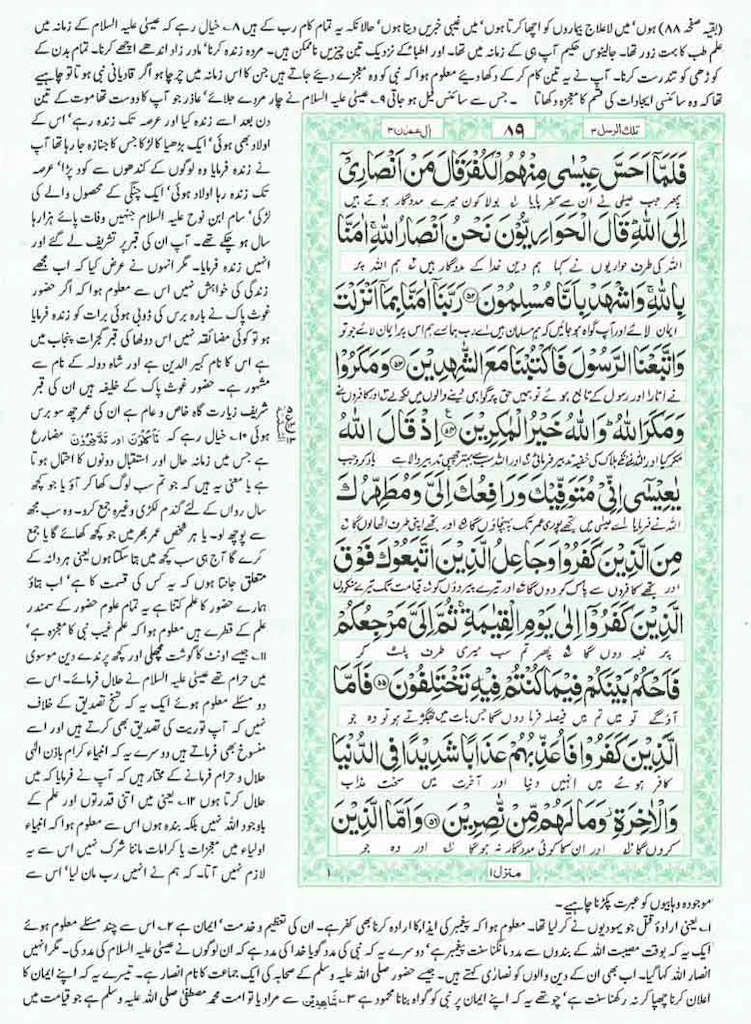 (بقیہ صفحہ ۸۸) ہوں' میں لاعلاج بیماروں کو اچھا کرتا ہوں' میں غیبی خبریں دیتا ہوں' حالانکہ یہ تمام کام رب کے ہیں ۸۔ خیال رہے کہ عیسیٰ علیہ السلام کے زمانہ میں
علم طب کا بہت زور تھا۔ جالینوس حکیم آپ ہی کے زمانہ میں تھا۔ اور اطباء کے نزدیک تین چیزیں ناممکن ہیں۔ مردہ زندہ کرنا' مادر زاد اندھے اچھے کرنا۔ تمام بدن کے
کوڑھی کو تندرست کرنا۔ آپ نے یہ تین کام کر کے دکھا دیئے معلوم ہوا کہ نبی کو وہ معجزے دیئے جاتے ہیں جن کا اس زمانہ میں چرچا ہو اگر قادیانی نبی ہوتا تو چاہیے
تھا کہ وہ سائنسی ایجادات کی قسم کا معجزہ دکھاتا ۔ جس سے سائنس فیل ہو جاتی ۹۔ عیسیٰ علیہ السلام نے چار مردے جلائے' عاذر جو آپ کا دوست تھا موت کے تین
دن بعد اسے زندہ کیا اور عرصہ تک زندہ رہے' اس کے
اولاد بھی ہوئی' ایک بڑھیا کا لڑکا جس کا جنازہ جا رہا تھا آپ
نے زندہ فرمایا وہ لوگوں کے کندھوں سے کود پڑا' عرصہ
تک زندہ رہا اولاد ہوئی' ایک چنگی کے محصول والے کی
لڑکی' سام ابن نوح علیہ السلام جنہیں وفات پائے ہزارہا
سال ہو چکے تھے۔ آپ ان کی قبر پر تشریف لے گئے اور
انہیں زندہ فرمایا۔ مگر انہوں نے عرض کیا کہ اب مجھے
زندگی کی خواہش نہیں اس سے معلوم ہوا کہ اگر حضور
غوث پاک نے بارہ برس کی ڈوبی ہوئی برات کو زندہ فرمایا
ہو تو کوئی مضائقہ نہیں اس دولھا کی قبر گجرات پنجاب میں
ہے اس کا نام کبیر الدین ہے اور شاہ دولہ کے نام سے
مشہور ہے۔ حضور غوث پاک کے خلیفہ ہیں ان کی قبر
شریف زیارت گاہ خاص و عام ہے ان کی عمر چھ سو برس
ہوئی ۱۰۔ خیال رہے کہ تَاْكُلُوْنَ اور تَدَّخِرُوْنَ مضارع
ہے جس میں زمانہ حال اور استقبال دونوں کا احتمال ہوتا
ہے یا معنی یہ ہیں کہ جو تم سب لوگ کھا کر آؤ یا جو کچھ
سال رواں کے لئے گندم لکڑی وغیرہ جمع کرو۔ وہ سب مجھ
سے پوچھ لو۔ یا ہر شخص عمر بھر میں جو کچھ کھائے گا یا جمع
کرے گا آج ہی سب کچھ میں بتا سکتا ہوں یعنی ہر دانہ کے
متعلق جانتا ہوں کہ یہ کس کی قسمت کا ہے' اب بتاؤ
ہمارے حضور کا علم کتنا ہے یہ تمام علوم حضور کے سمندر
علم کے قطرے ہیں معلوم ہوا کہ علم غیب نبی کا معجزہ ہے'
۱۱۔ جیسے اونٹ کا گوشت مچھلی اور کچھ پرندے دین موسوی
میں حرام تھے عیسیٰ علیہ السلام نے حلال فرمائے۔ اس سے
دو مسئلے معلوم ہوئے ایک یہ کہ نسخ تصدیق کے خلاف
نہیں کہ آپ توریت کی تصدیق بھی کرتے ہیں اور اسے
منسوخ بھی فرماتے ہیں دوسرے یہ کہ انبیاء کرام باذن الٰہی
حلال و حرام فرمانے کے مختار ہیں کہ آپ نے فرمایا کہ میں
حلال کرتا ہوں ۱۲۔ یعنی میں اتنی قدرتوں اور علم کے
باوجود اللہ نہیں بلکہ بندہ ہوں اس سے معلوم ہوا کہ انبیاء
اولیاء میں معجزات یا کرامات ماننا شرک نہیں اس سے یہ
لازم نہیں آتا۔ کہ ہم نے انہیں رب مان لیا' اس سے
موجودہ وہابیوں کو عبرت پکڑنا چاہیے۔
تلك الرسل ۳ ۸۹ اٰل عمران ۳
فَلَمَّاۤ اَحَسَّ عِیْسٰى مِنْهُمُ الْكُفْرَ قَالَ مَنْ اَنْصَارِیْۤ
پھر جب عیسٰی نے ان سے کفر پایا بولا کون میرے مددگار ہوتے ہیں
اِلَى اللّٰهِؕ قَالَ الْحَوَارِیُّوْنَ نَحْنُ اَنْصَارُ اللّٰهِۚ اٰمَنَّا
اللہ کی طرف حواریوں نے کہا ہم دین خدا کے مددگار ہیں ہم اللہ پر
بِاللّٰهِۚ وَاشْهَدْ بِاَنَّا مُسْلِمُوْنَ ۝۵۲ رَبَّنَاۤ اٰمَنَّا بِمَاۤ اَنْزَلْتَ
ایمان لائے اور آپ گواہ ہو جائیں کہ ہم مسلمان ہیں اے رب ہمارے ہم اس پر ایمان لائے جو تو
وَاتَّبَعْنَا الرَّسُوْلَ فَاكْتُبْنَا مَعَ الشّٰهِدِیْنَ ۝۵۳ وَمَكَرُوْا
نے اتارا اور رسول کے تابع ہوئے تو ہمیں حق پر گواہی دینے والوں میں لکھ لے اور کافروں نے
وَمَكَرَ اللّٰهُؕ وَاللّٰهُ خَیْرُ الْمٰكِرِیْنَ ۝۵۴ اِذْ قَالَ اللّٰهُ
مکر کیا اور اللہ نے انکے ہلاک کی خفیہ تدبیر فرمائی اور اللہ سب سے بہتر چھپی تدبیر والا ہے یاد کرو جب
یٰعِیْسٰۤى اِنِّیْ مُتَوَفِّیْكَ وَرَافِعُكَ اِلَیَّ وَمُطَهِّرُكَ
اللہ نے فرمایا اے عیسٰی میں تجھے پوری عمر تک پہنچاؤں گا اور تجھے اپنی طرف اٹھا لوں گا
مِنَ الَّذِیْنَ كَفَرُوْا وَجَاعِلُ الَّذِیْنَ اتَّبَعُوْكَ فَوْقَ
اور تجھے کافروں سے پاک کر دوں گا اور تیرے پیرووں کو قیامت تک تیرے منکروں
الَّذِیْنَ كَفَرُوْۤا اِلٰى یَوْمِ الْقِیٰمَةِۚ ثُمَّ اِلَیَّ مَرْجِعُكُمْ
پر غلبہ دوں گا پھر تم سب میری طرف پلٹ کر
فَاَحْكُمُ بَیْنَكُمْ فِیْمَا كُنْتُمْ فِیْهِ تَخْتَلِفُوْنَ ۝۵۵ فَاَمَّا
آؤ گے تو میں تم میں فیصلہ فرما دوں گا جس بات میں جھگڑتے ہو تو وہ جو
الَّذِیْنَ كَفَرُوْا فَاُعَذِّبُهُمْ عَذَابًا شَدِیْدًا فِی الدُّنْیَا
کافر ہوئے میں انہیں دنیا اور آخرت میں سخت عذاب
وَالْاٰخِرَةِ٘ وَمَا لَهُمْ مِّنْ نّٰصِرِیْنَ ۝۵۶ وَاَمَّا الَّذِیْنَ
کروں گا اور ان کا کوئی مددگار نہ ہوگا اور وہ جو
منزل ۱
۱۔ یعنی ارادۂ قتل جو یہودیوں نے کر لیا تھا۔ معلوم ہوا کہ پیغمبر کی ایذا کا ارادہ کرنا بھی کفر ہے۔ ان کی تعظیم و خدمت' ایمان ہے ۲۔ اس سے چند مسئلے معلوم ہوئے
ایک یہ کہ بوقت مصیبت اللہ کے بندوں سے مدد مانگنا سنت پیغمبر ہے' دوسرے یہ کہ نبی کی مدد گویا خدا کی مدد ہے کہ ان لوگوں نے عیسیٰ علیہ السلام کی مدد کی۔ مگر انہیں
انصار اللہ کہا گیا۔ اب بھی ان کے دین والوں کو نصاریٰ کہتے ہیں۔ جیسے حضور صلی اللہ علیہ وسلم کے صحابہ کی ایک جماعت کا نام انصار ہے۔ تیسرے یہ کہ اپنے ایمان کا
اعلان کرنا چھپا کر نہ رکھنا سنت ہے' چوتھے یہ کہ اپنے ایمان پر نبی کو گواہ بنانا محمود ہے ۳۔ شَاهِدِیْنَ سے مراد یا تو امت محمد مصطفیٰ صلی اللہ علیہ وسلم ہے جو قیامت میں